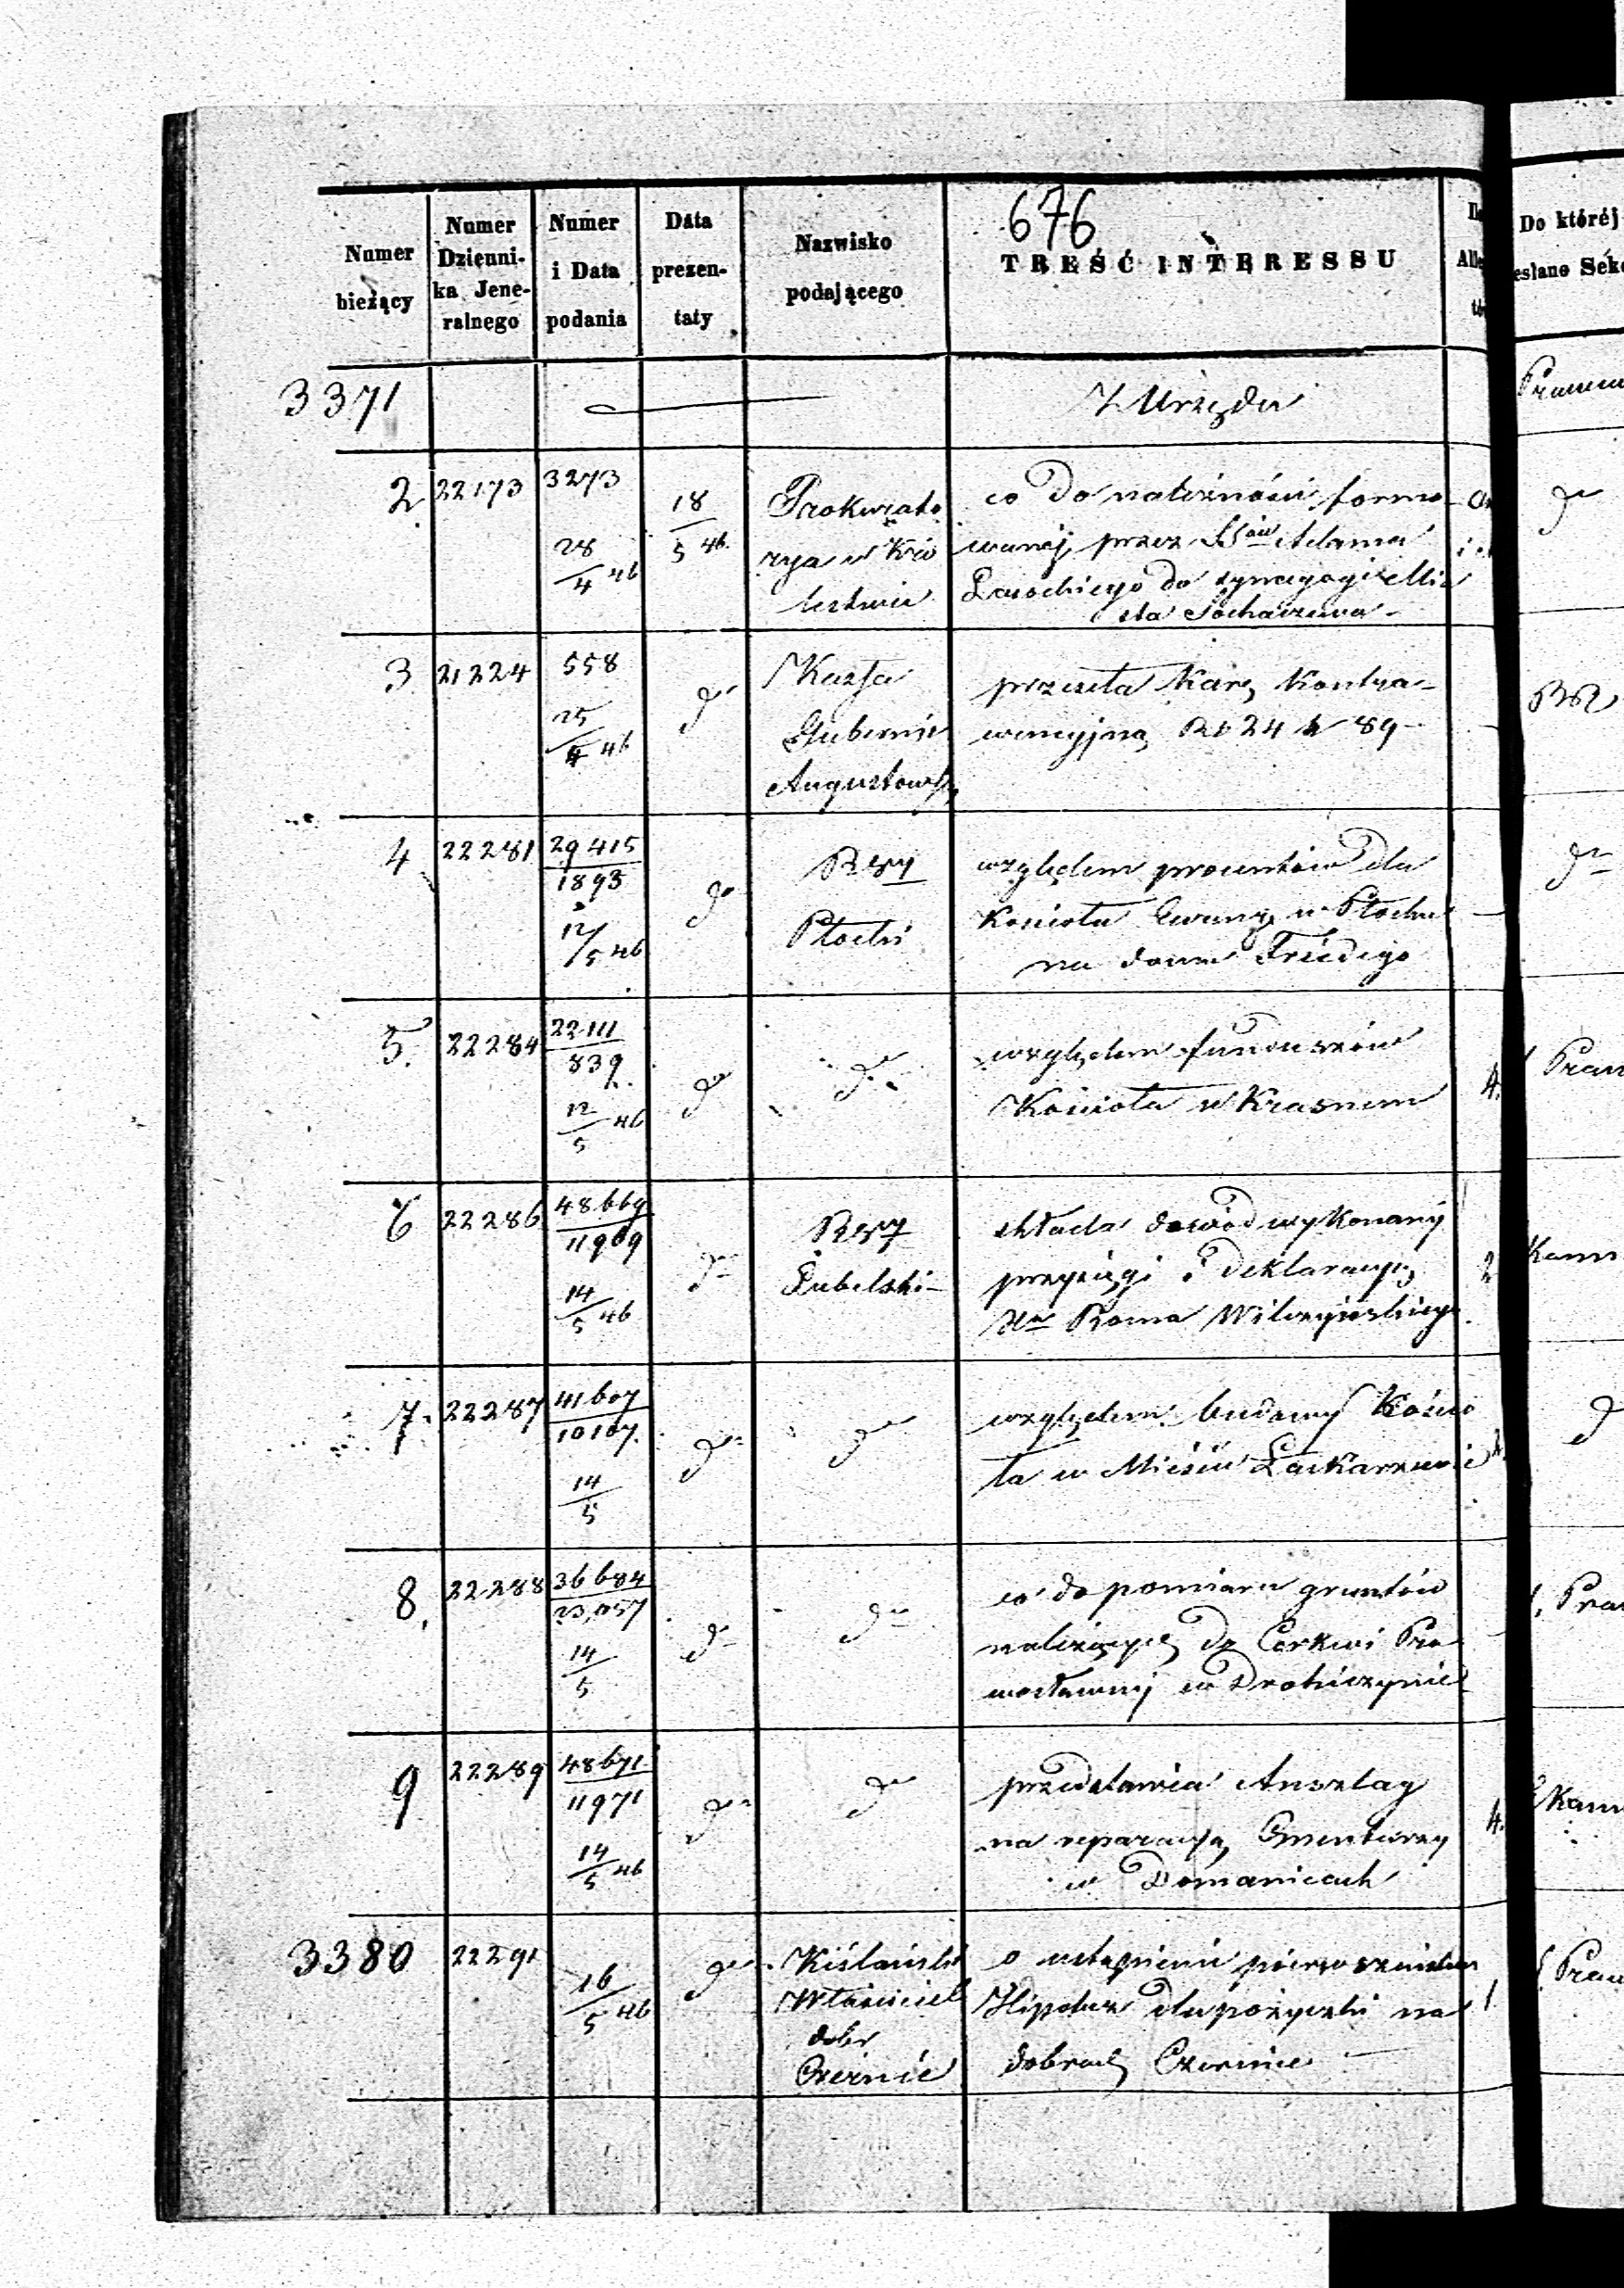 676
Numer bieżący
Numer Dzienni- ka Jene- ralnego
Numer i Data podania
Data prezen- taty
Nazwisko podającego
TREŚĆ INTERESSU
Do któréj
esłano Sek
3371
Z Urzędu
2 22173 3273 28/4 46 18/5 46
Prokurato
rya w Kró
lestwie
co do należności formo
wanej przez SSów Adama
Lasockiego do synagogi Mia
sta Sochaczewa
do
3 21224 558 25/4 46 do
Kassa
Gubernii
Augustows
przesyła karę kontra-
wencyjną Rs 24 k 89
4 22281 29415/1893 12/5 46 do
Rząd
Płocki
względem procentów dla
Kościoła Ewang w Płocku
na domu
do
5. 22284 22111/839 12/5 46 do do
względem funduszów
Kościoła w Krasnem
4.
6 22286 48669/11969 14/5 46 do
Rząd
Lubelski
składa dowód wykonanej
przysięgi i deklaracyą
2
7. 22287 41607/10107 14/5 do do
względem budowy Kościo
ła w Mieście Łaskarzewie
8. 22288 36684/23,057 14/5 do do
co do pomiaru gruntów
należących do Cerkwi Pra
wosławnej w Drohiczynie
9 22289 48671/11971 14/5 46 do do
przedstawia Anszlag
na reparacyą Cmentarzy
w Domanicach
4.
3380 22291 16/5 46 do
Kiślański
Właściciel
dobr
Czernic
o ustąpienie pierwszeństwa
Hipotece dla pożyczki na
dobrach Czernice
1.